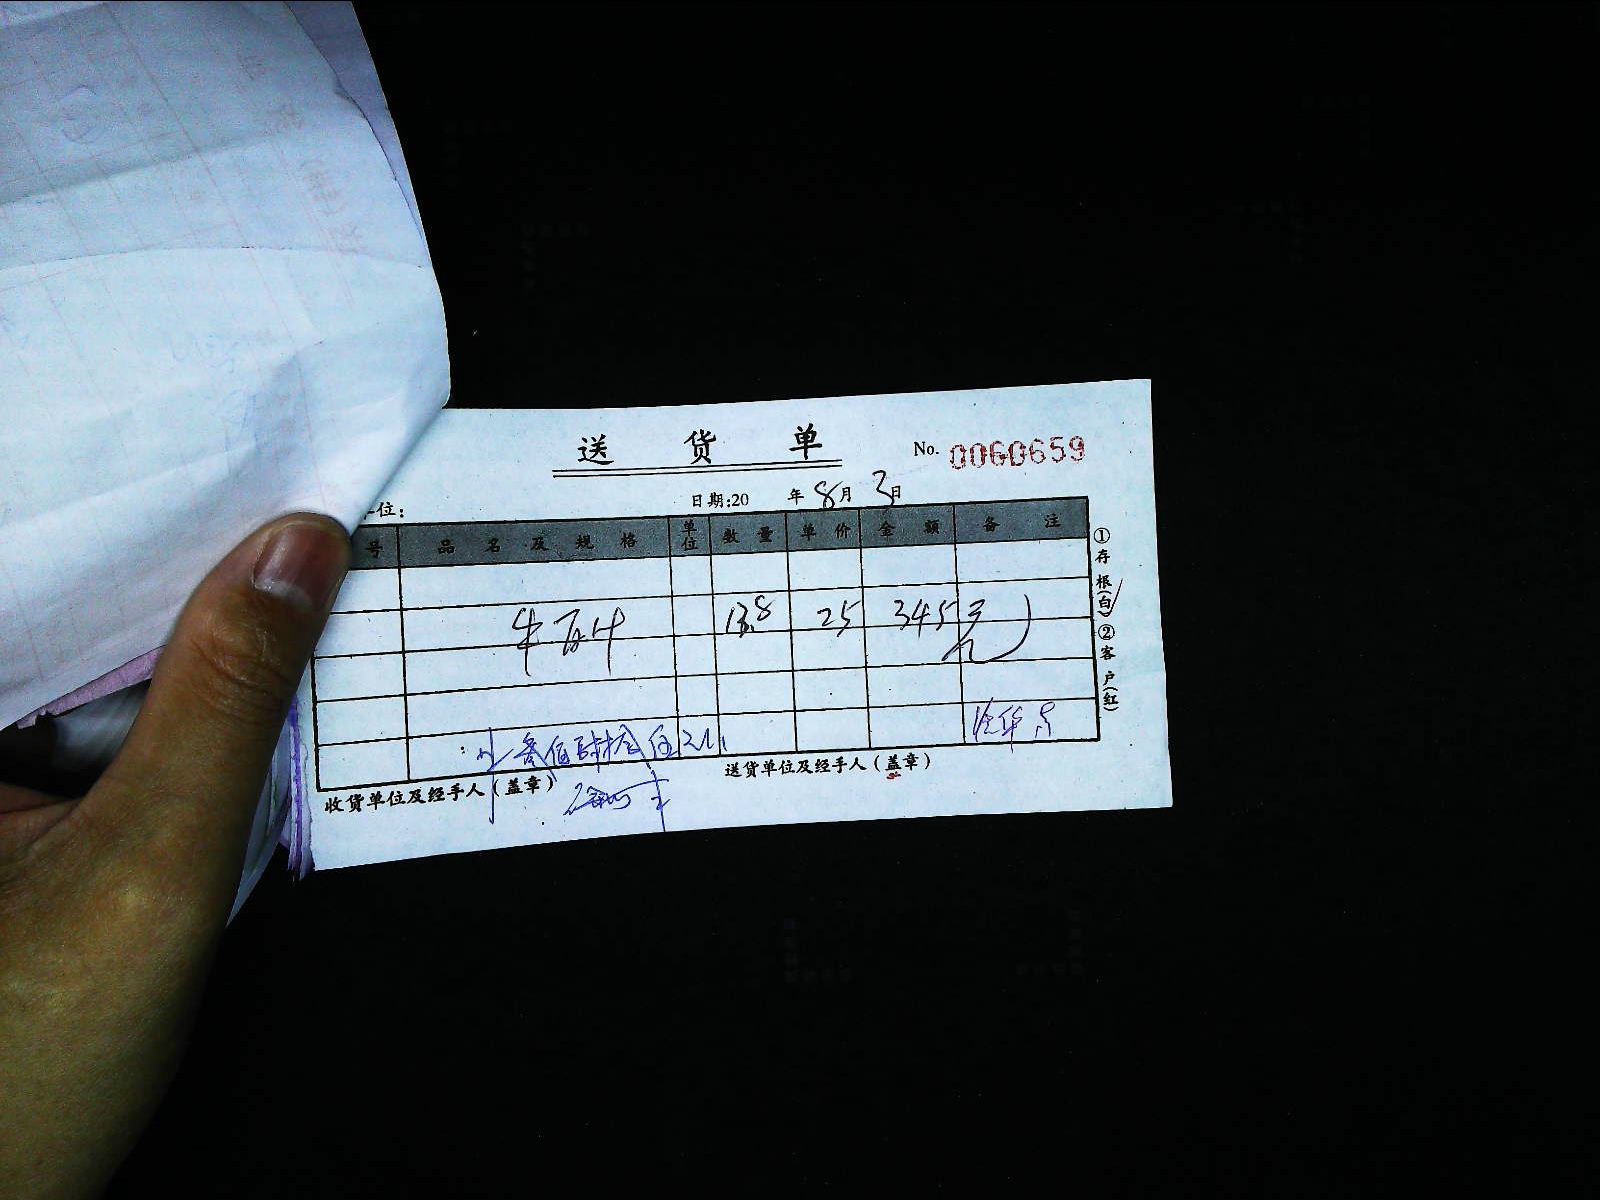 送 货 单
No. 0060659
单位: 日期:20 年 8 月 3 日
号 品 名 及 规 格 单位 数 量 单 价 金 额 备 注
13.8 25 345元
叁佰肆拾伍元
收货单位及经手人（盖章） 送货单位及经手人（盖章）
①存根(白) ②客户(红)